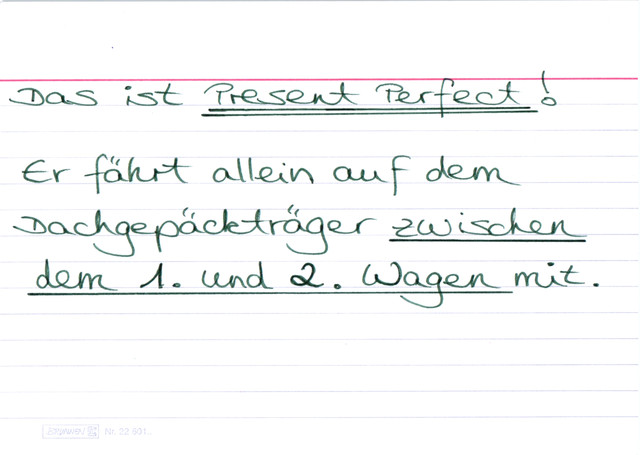 Das ist Present Perfect!
Er fährt allein auf dem
Dachgepäckträger zwischen
dem 1. und 2. Wagen mit.